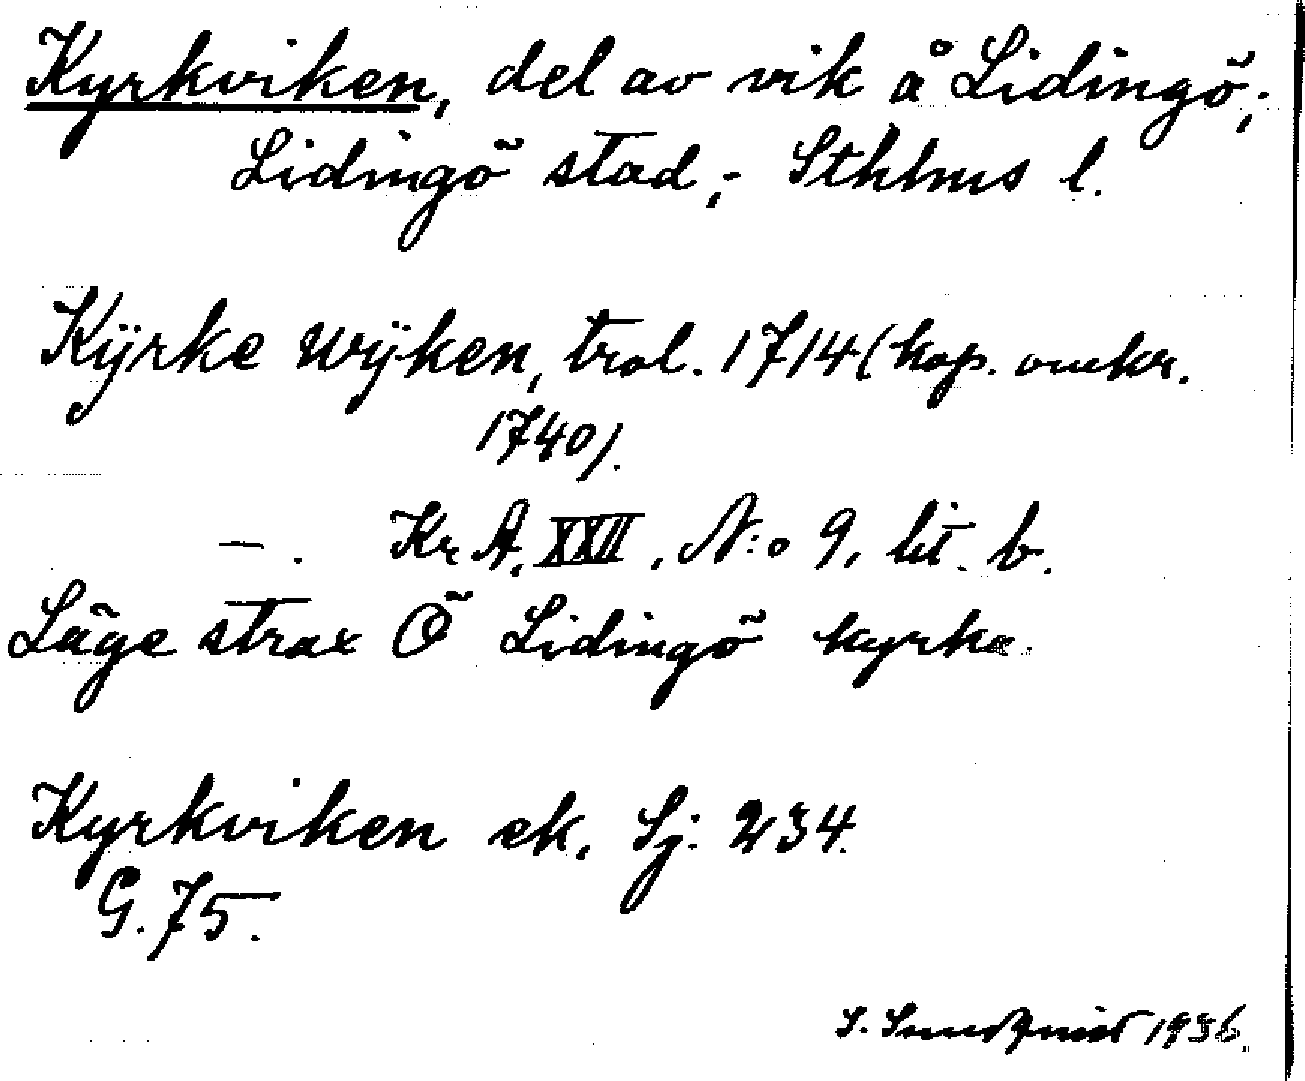 Kyrkviken, del av vik å Lidingö,;
Lidingö stad,; Sthlms l.
Kÿrke Wÿken, trol. 1714 (kop. omkr.
1740).
—. Kr. A. XXII, N:o 9, lit. b.
Läge strax Ö Lidingö kyrka.
Kyrkviken ek. Sj: 234.
G. 75.
S. Sundqvist 1936.